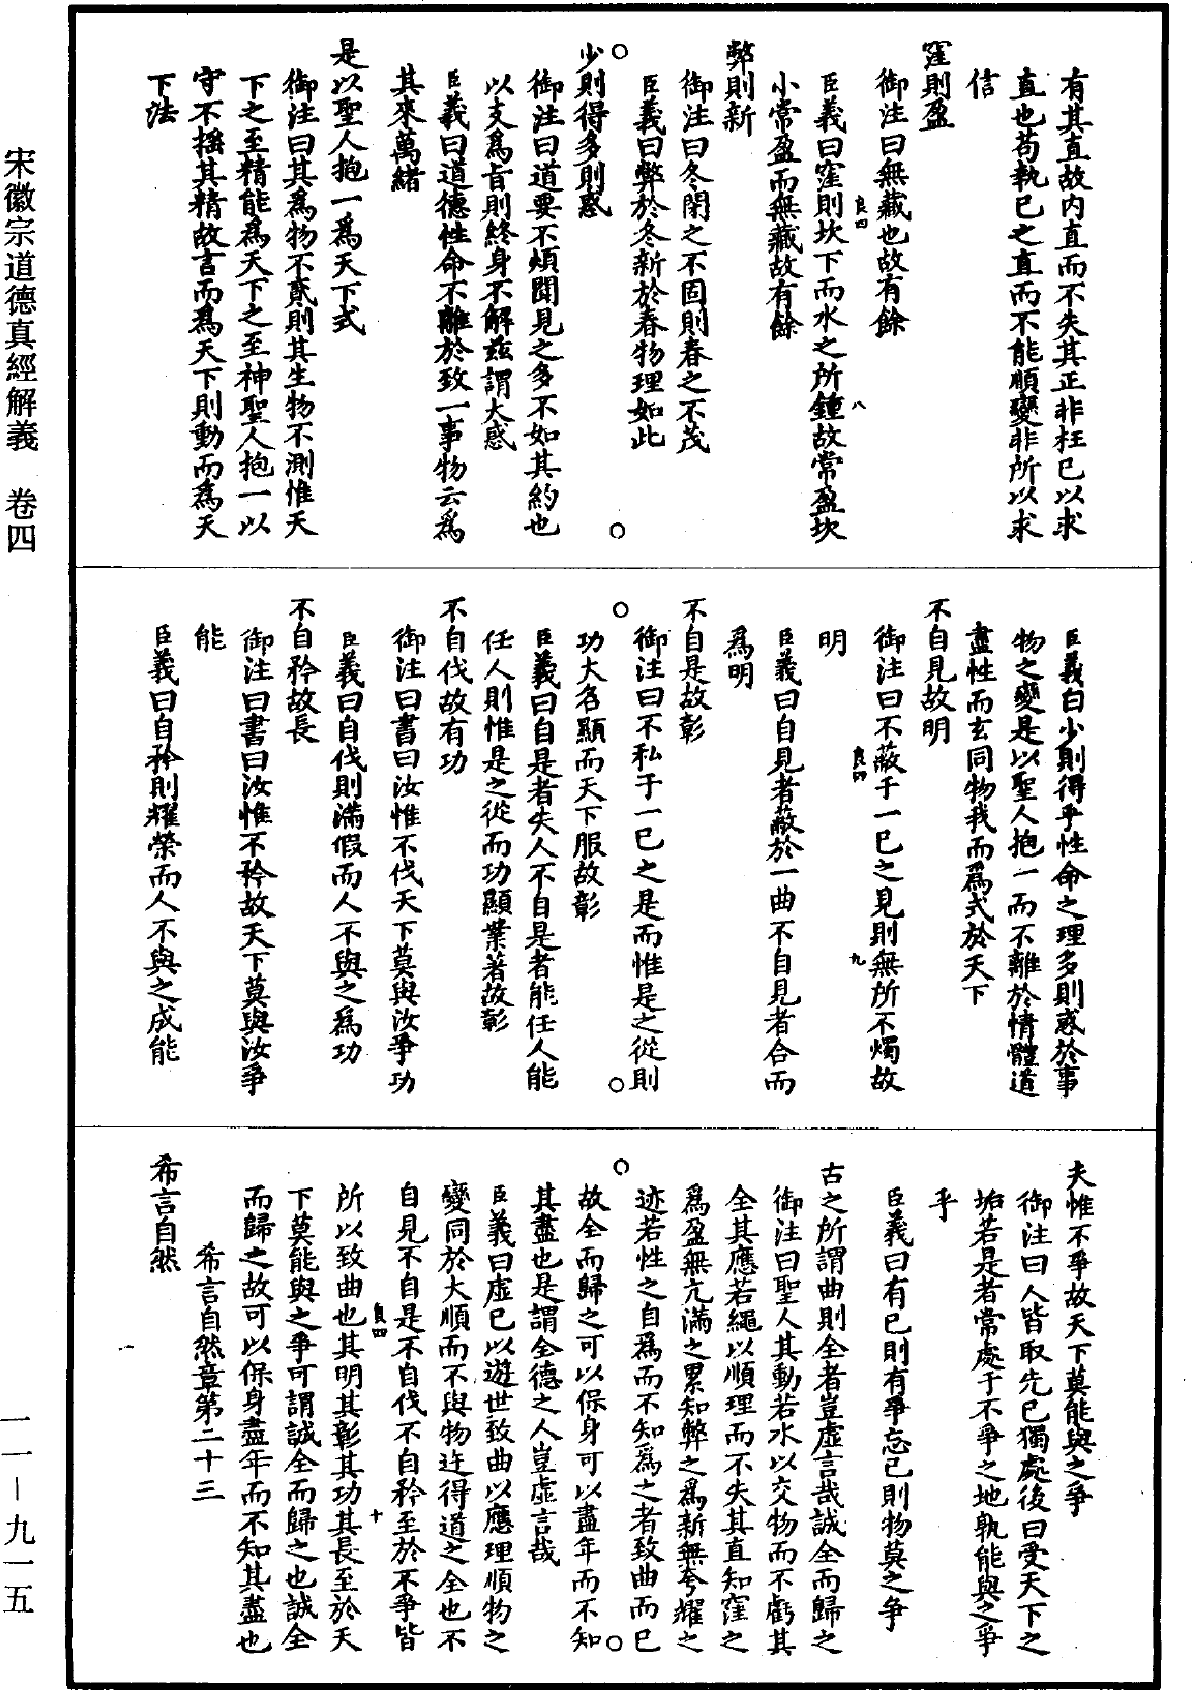 有其直故内直而不失其正非枉已以求
直也苟執已之直而不能順變非所以求
信
窪則盈
御注曰無藏也故有餘
良四
八
臣義曰窪則坎下而水之所鍾故常盈坎
小常盈而無藏故有餘
弊則新
御注曰冬閉之不固則春之不茂
臣義曰弊於冬新於春物理如此
少則得多則惑
御注曰道要不煩聞見之多不如其約也
以支爲旨則終身不解兹謂大惑
臣義曰道德性命不離於致一事物云爲
其來萬緒
是以聖人抱一爲天下式
御注曰其爲物不貳則其生物不測惟天
下之至精能爲天下之至神聖人抱一以
守不摇其精故言而爲天下則動而爲天
下法
臣義曰少則得乎性命之理多則惑於事
物之變是以聖人抱一而不離於情體道
盡性而玄同物我而爲式於天下
不自見故明
御注曰不蔽于一已之見則無所不燭故
明
良四
九
臣義曰自見者蔽於一曲不自見者合而
爲明
不自是故彰
御注曰不私于一已之是而惟是之從則
功大名顯而天下服故彰
臣義曰自是者失人不自是者能任人能
任人則惟是之從而功顯業著故彰
不自伐故有功
御注曰書曰汝惟不伐天下莫與汝爭功
臣義曰自伐則滿假而人不與之爲功
不自矜故長
御注曰書曰汝惟不矜故天下莫與汝爭
能
臣義曰自矜則耀榮而人不與之成能
夫惟不爭故天下莫能與之爭
御注曰人皆取先已獨處後曰受天下之
垢若是者常處于不爭之地孰能與之爭
乎
臣義曰有已則有爭忘已則物莫之争
古之所謂曲則全者豈虛言哉誠全而歸之
御注曰聖人其動若水以交物而不虧其
全其應若繩以順理而不失其直知窪之
爲盈無亢滿之累知弊之爲新無夸耀之
迹若性之自爲而不知爲之者致曲而已
故全而歸之可以保身可以盡年而不知
其盡也是謂全德之人豈虛言哉
臣義曰虛已以遊世致曲以應理順物之
變同於大順而不與物迕得道之全也不
自見不自是不自伐不自矜至於不爭皆
良四
十
所以致曲也其明其彰其功其長至於天
下莫能與之爭可謂誠全而歸之也誠全
而歸之故可以保身盡年而不知其盡也
希言自然章第二十三
希言自然
宋徽宗道德真經解義　卷四
一一－九一五